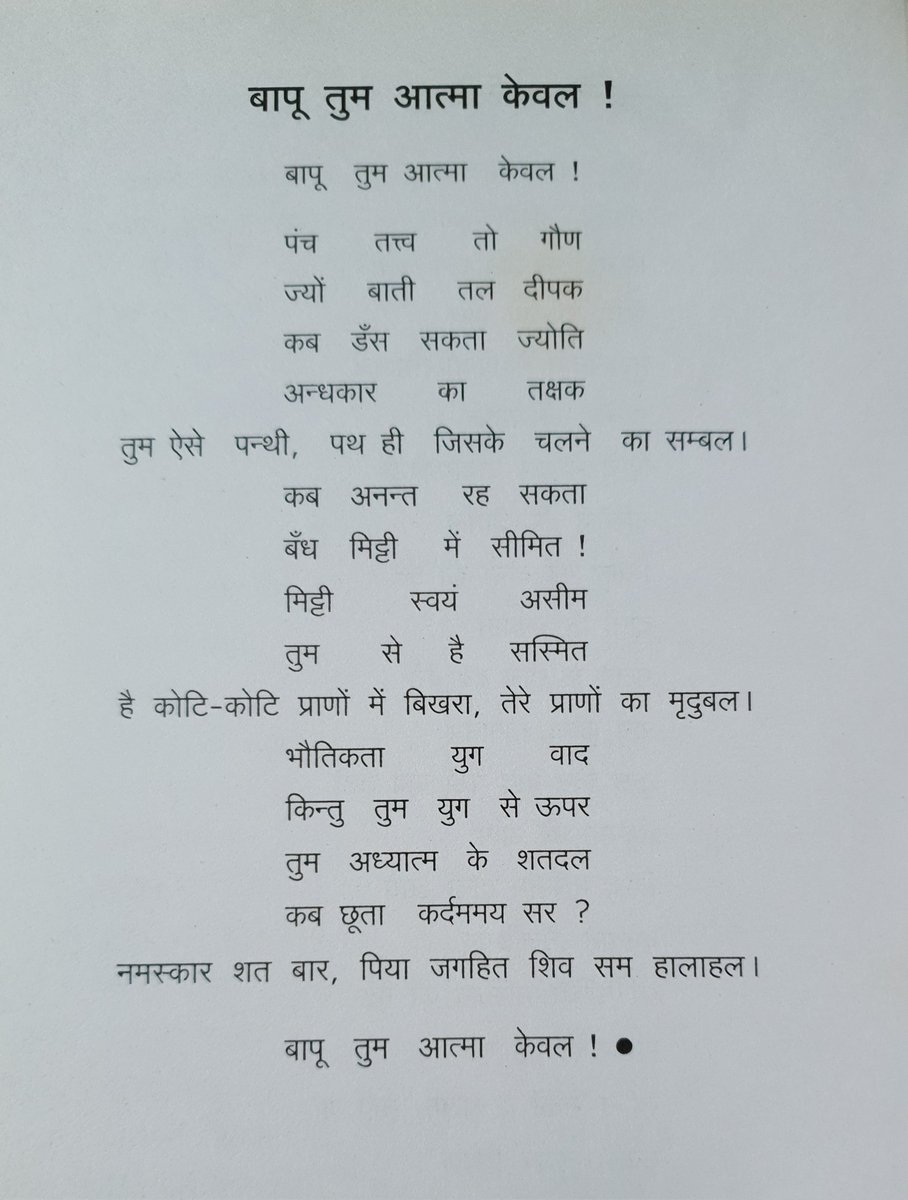 बापू तुम आत्मा केवल !
बापू तुम आत्मा केवल !
पंच तत्त्व तो गौण
ज्यों बाती तल दीपक
कब डँस सकता ज्योति
अन्धकार का तक्षक
तुम ऐसे पन्थी, पथ ही जिसके चलने का सम्बल।
कब अनन्त रह सकता
बँध मिट्टी में सीमित !
मिट्टी स्वयं असीम
तुम से है सस्मित
है कोटि-कोटि प्राणों में बिखरा, तेरे प्राणों का मृदुबल।
भौतिकता युग वाद
किन्तु तुम युग से ऊपर
तुम अध्यात्म के शतदल
कब छूता कर्दममय सर ?
नमस्कार शत बार, पिया जगहित शिव सम हालाहल।
बापू तुम आत्मा केवल ! ●